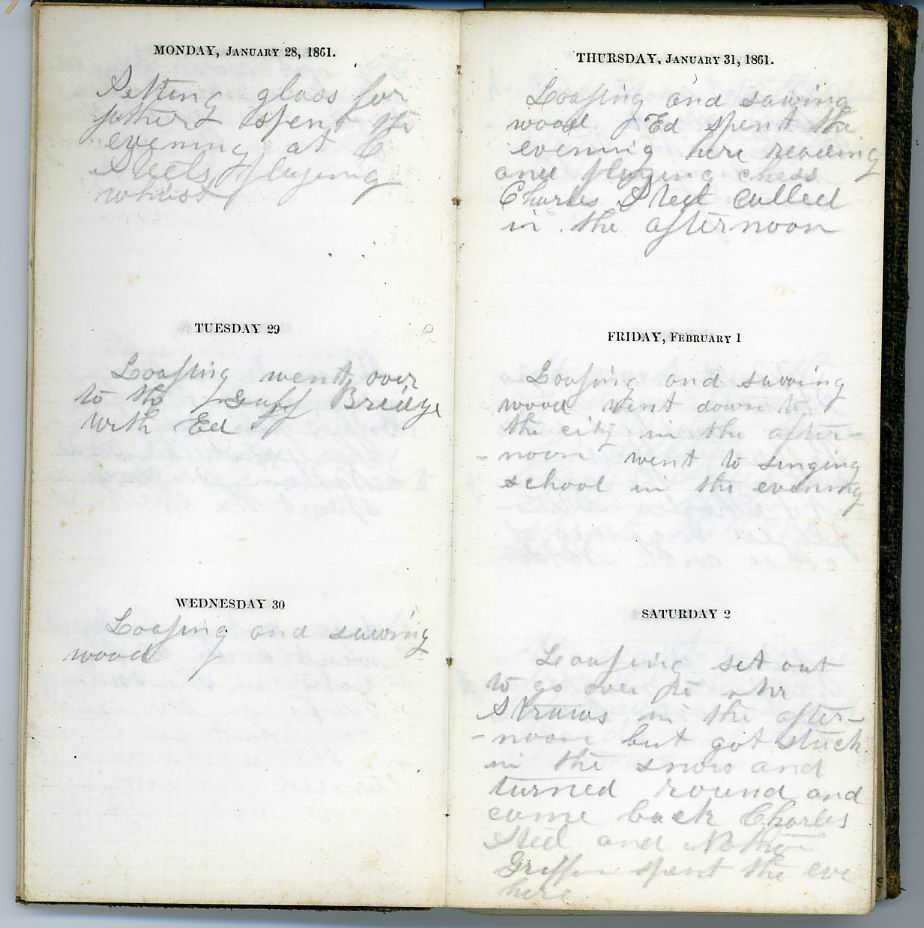 MONDAY, JANUARY 28, 1861.
Setting glass for
father spent the
evening at C
Steels playing
whist
TUESDAY 29
Loafing went over
to the Bridge
with Ed
WEDNESDAY 30
Loafing and sawing
wood
THURSDAY, JANUARY 31, 1861.
Loafing and sawing
wood Ed spent the
evening here reading
and playing chess
Charles Steel called
in the afternoon
FRIDAY, FEBRUARY 1
Loafing and sawing
wood went down to
the city in the after-
-noon went to singing
school in the evening
SATURDAY 2
Loafing set out
to go over to
Straws in the after-
-noon but got stuck
in the snow and
turned round and
came back Charles
Steel and
Griffin spent the eve
here